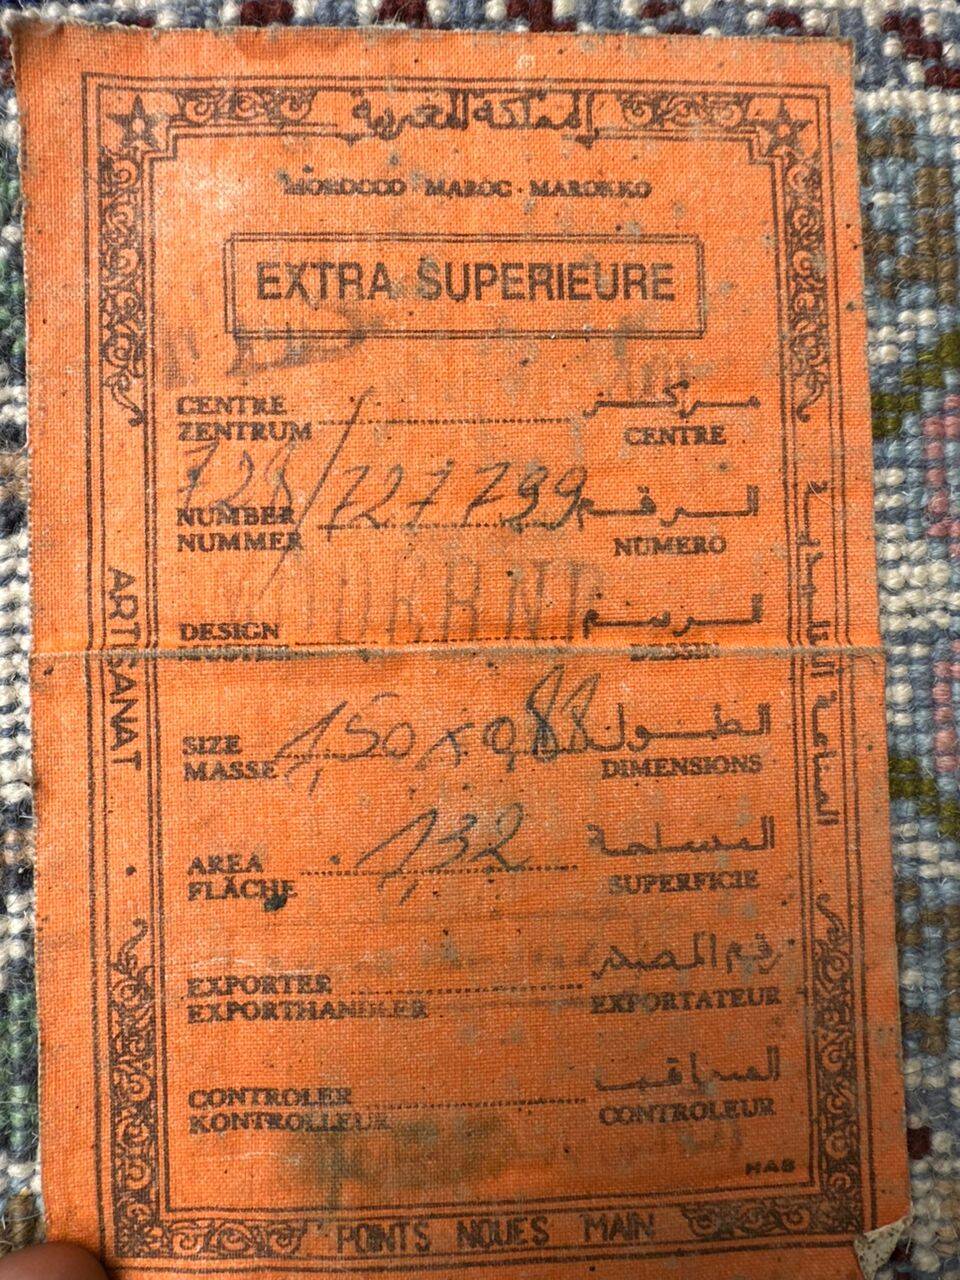 المملكة المغربية
MOROCCO · MAROC · MAROKKO
EXTRA SUPERIEURE
CENTRE مركز
ZENTRUM CENTRE
728/727799
NUMBER الرقم
NUMMER NUMERO
DESIGN الرسم
MUSTER DESSIN
SIZE 1,50 x 0,88 الطول
MASSE DIMENSIONS
AREA 1,32 المساحة
FLÄCHE SUPERFICIE
EXPORTER رقم المصدر
EXPORTHANDLER EXPORTATEUR
CONTROLER المراقب
KONTROLLEUR CONTROLEUR
HAB
POINTS NOUES MAIN
ARTISANAT
الصناعة التقليدية